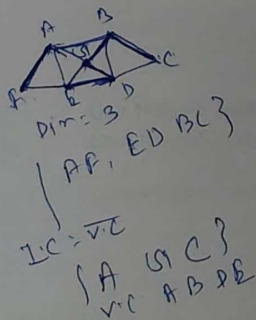 A
B
G
C
F
E
D
Dim = 3
{ AF, ED BC }
I.C = V.C
{ A G C }
V.C A B D E